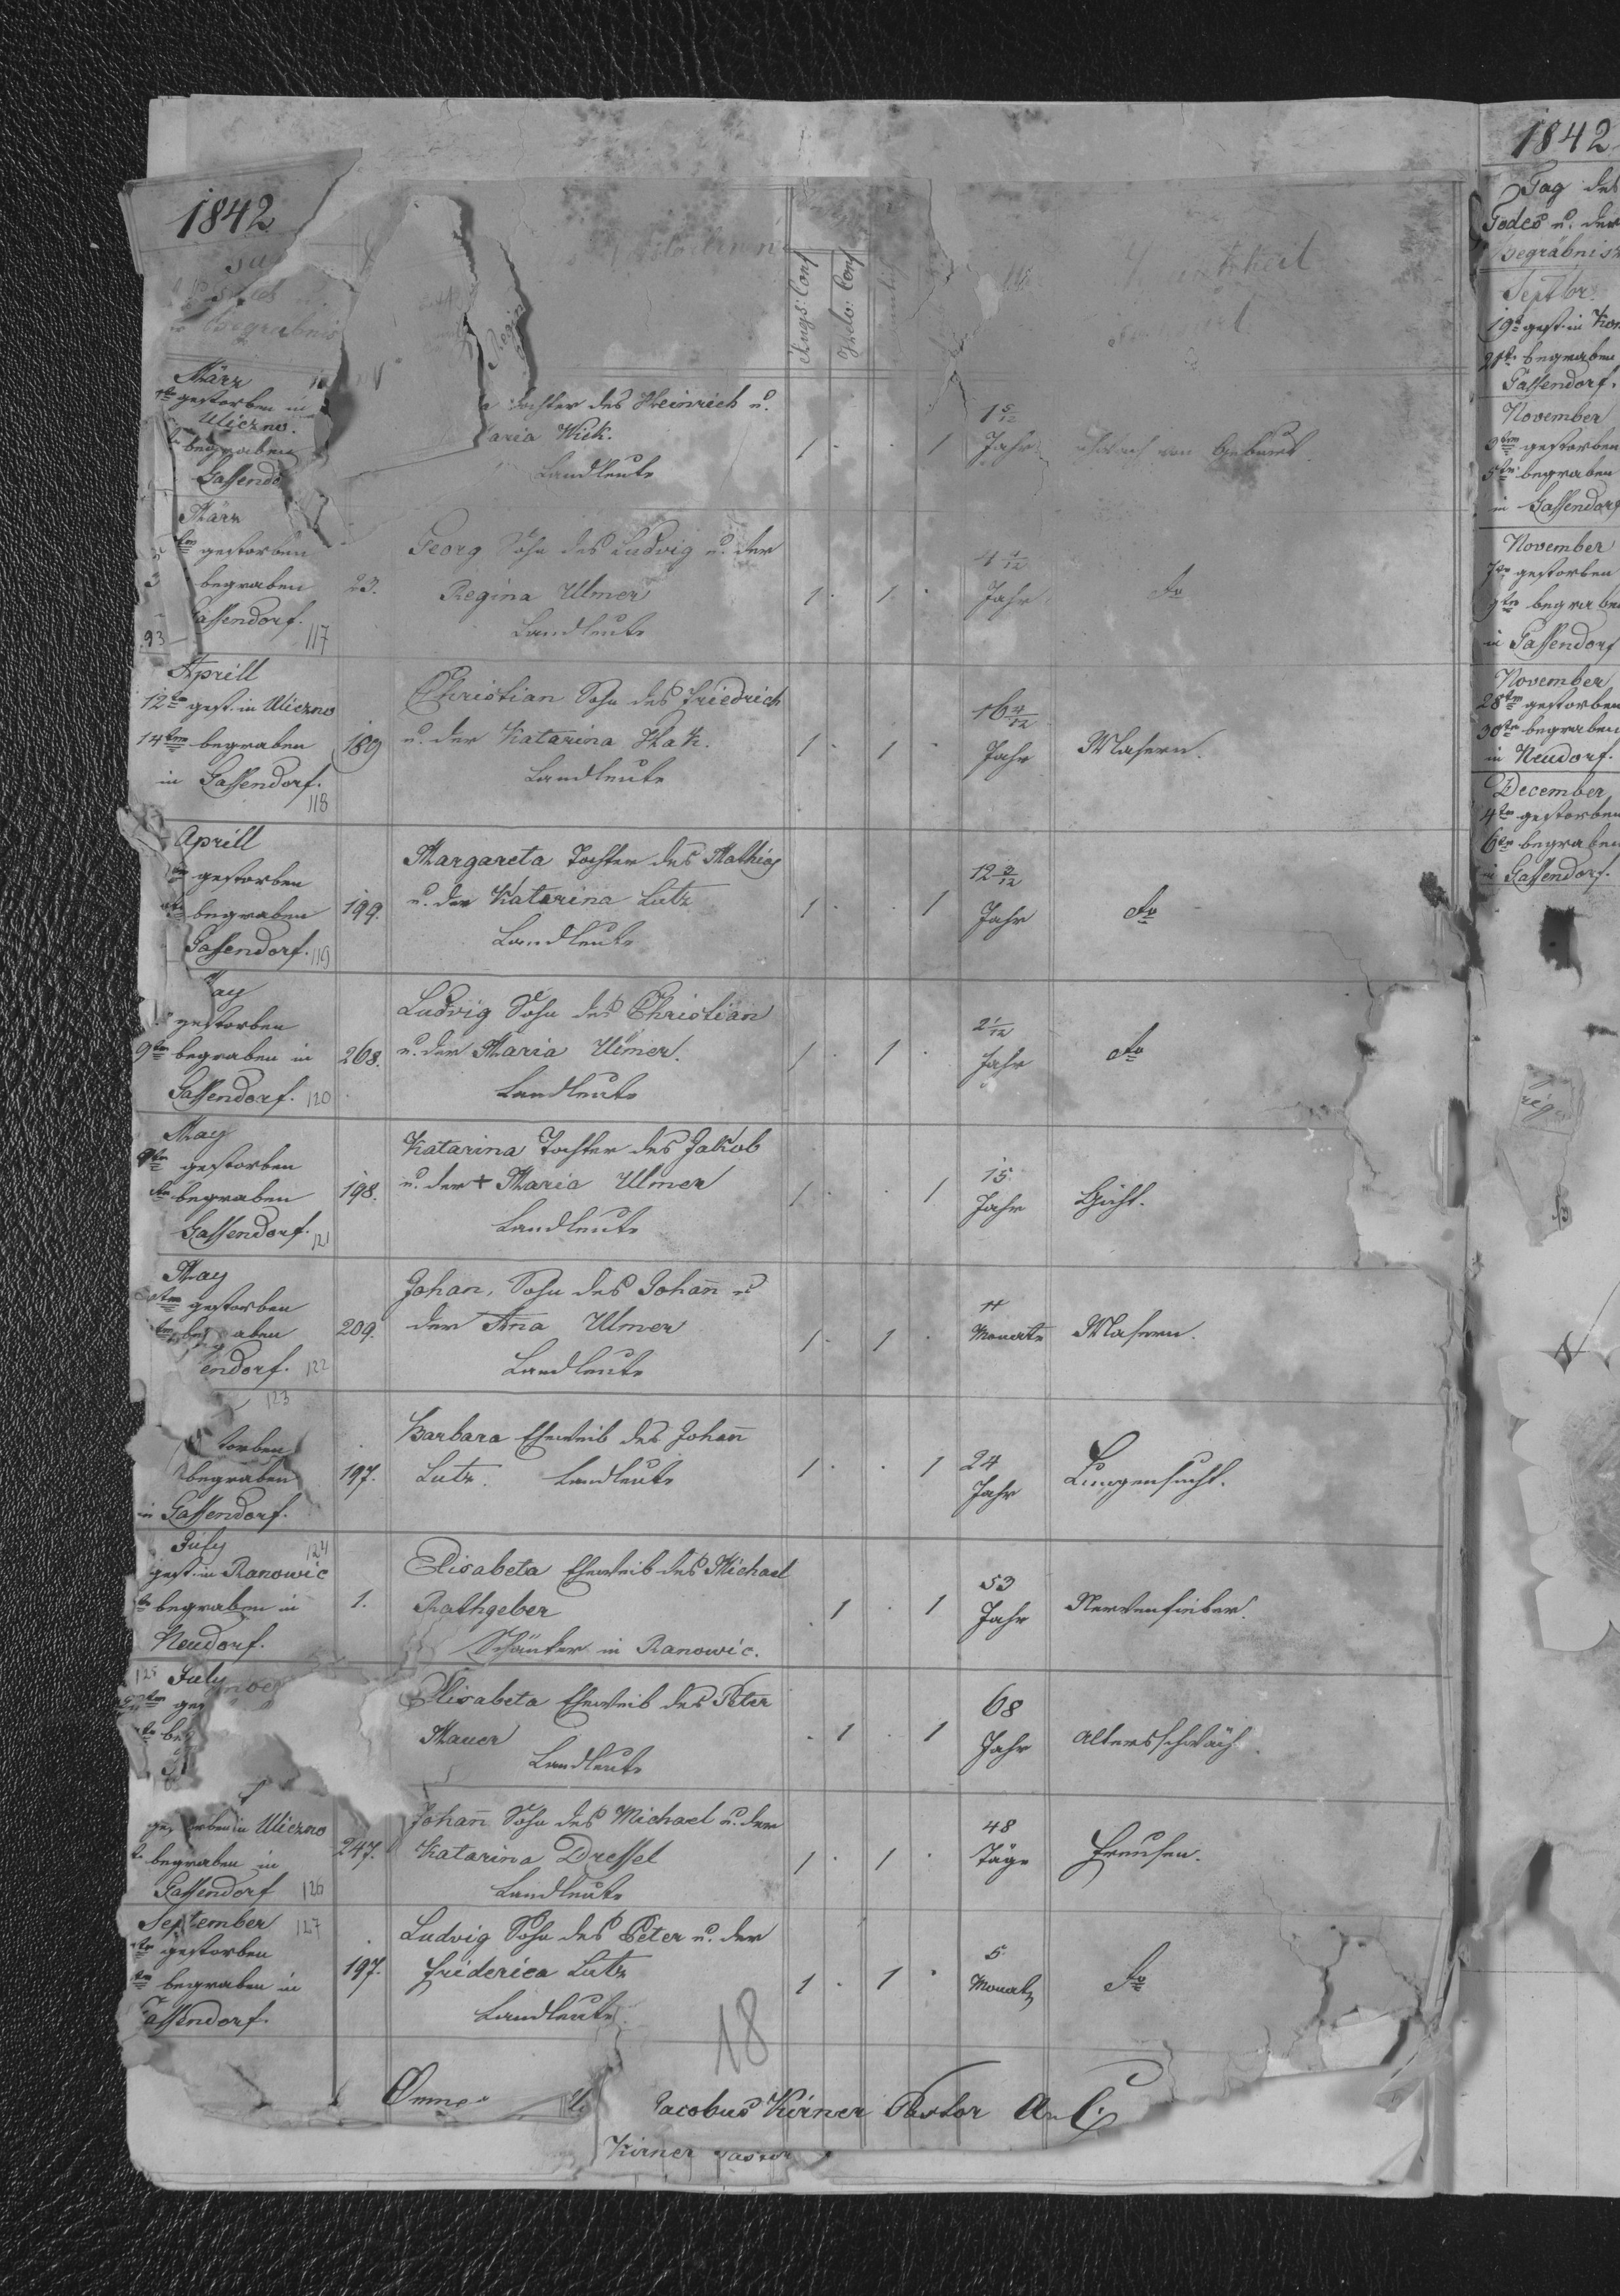 1842
Begräbnis
Augs: Conf
Helv: Conf
März
gestorben in
Uliczno.
begraben
Gassendo
Tochter des Heinrich u.
aria Wick.
Landleute
1 . . 1
1 5/12
Jahr
schwach von Geburt.
März
gestorben
begraben
Gassendorf.
93
117
23.
Georg Sohn des Ludvig u. der
Regina Ulmer
Landleute
1 . 1 .
4 1/12
Jahr
do
Aprill
12ten gest. in Uliczno
14ten begraben
in Gassendorf.
118
189
Christian Sohn des Friedrich
u. der Katarina Hak.
Landleute
1 . 1 .
16 4/12
Jahr
Masern.
Aprill
gestorben
begraben
Gassendorf.
119
199.
Margareta Tochter des Mathias
u. der Katarina Lutz
Landleute
1 . . 1
12 3/12
Jahr
do
ay
gestorben
9ten begraben in
Gassendorf.
120
268.
Ludvig Sohn des Christian
u. der Maria Ulmer.
Landleute
1 . 1 .
2 1/12
Jahr
do
May
gestorben
begraben
Gassendorf.
121
198.
Katarina Tochter des Jakob
u. der + Maria Ulmer
Landleute
1 . . 1
15.
Jahr
Gicht.
May
gestorben
beg aben
endorf.
122
209.
Johan, Sohn des Johañ u
der Aña Ulmer
Landleute
1 . 1 .
Monate
Masern.
123
torben
begraben
in Gassendorf.
197.
Barbara Eheweib des Johañ
Lutz. Landleute
1 . . 1
24
Jahr
Lungensucht.
July
124
gest. in Ranowic
begraben in
Neudorf.
1.
Elisabeta Eheweib des Michael
Rathgeber
Schänker in Ranowic.
. 1 . 1
53
Jahr
Nervenfieber.
125
July
ges
be
Elisabeta Eheweib des Peter
Mauer
Landleute
. 1 . 1
68
Jahr
Altersschwäch
orben in Uliczno
begraben in
Gassendorf
126
247.
Johañ Sohn des Michael u. der
Katarina Dressel
Landleute
1 . 1 .
48
Täge
Freusen.
September
127
gestorben
begraben in
Gassendorf.
197.
Ludvig Sohn des Peter u. der
Friderica Lutz
Landleute
1 . 1 .
5
Monat
do
18
Jacobus Kirner Pastor A. C.
Kirner Pastor
1842
Tag des
Todes u. der
Begräbniss
Septbr.
19t gest. in
21t begraben
Gassendorf.
November
3ten gestorben
5ten begraben
in Gassendorf
November
7ten gestorben
9ten begraben
in Gassendorf
November
28ten gestorben
30ten begraben
in Neudorf.
December
4ten gestorben
6ten begraben
in Gassendorf.